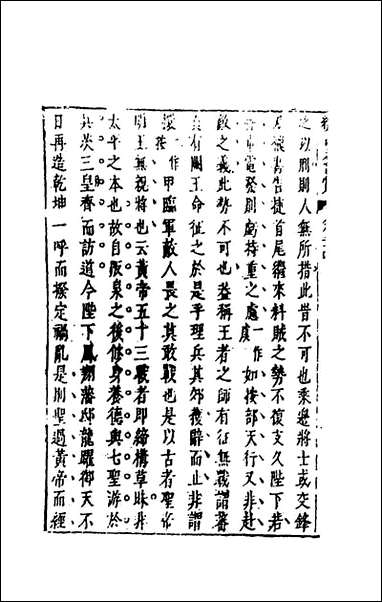 之以則則人無所措此昔不可也乘邊將士或交鋒
告捷首尾繼來料賊之勢不復支久陛下若
電發則虧持重之慮一作虞如按部天行又非赴
敵之義此勢不可也蓋稱王者之師有征無戰謂蕃
有闕王命征之於是乎理兵其郊獲辭而止非謂
按一作甲臨軍敵人畏之莫敢戰也是以古者聖帝
明王無親將也云黃帝五十三戰者即締構草昧非
太平之本也故自阪泉之後修身養德與七聖游於
具茨三皇齊而訪道今陛下鳳翔藩邸龍躍御天不
日再造乾坤一呼而撥定禍亂是則聖過黃帝而經